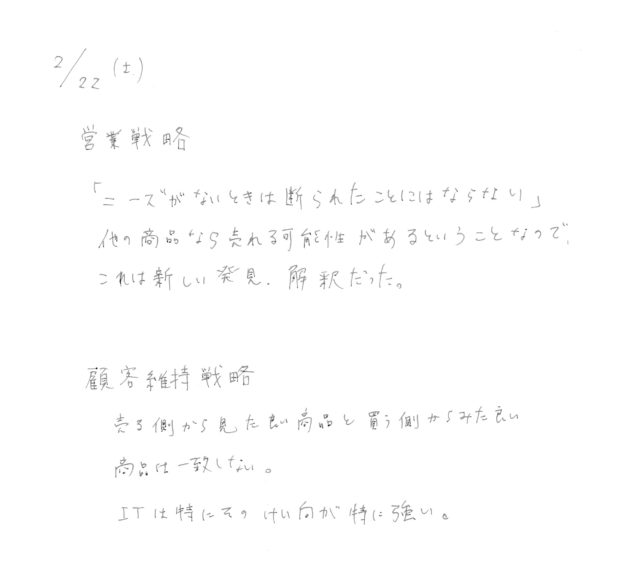 2/22 (土)
営業戦略
「ニーズがないときは断られたことにはならない」
他の商品なら売れる可能性があるということなので、
これは新しい発見、解釈だった。
顧客維持戦略
売る側から見た良い商品と買う側からみた良い
商品は一致しない。
ITは特にその けい向が特に強い。